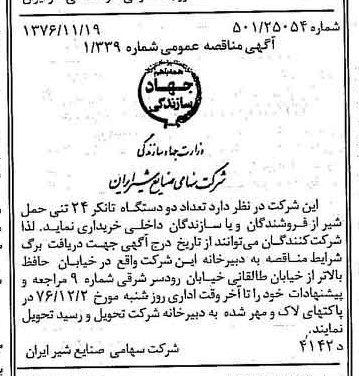 شماره ۵۰۱/۲۵۰۵۴ ۱۳۷۶/۱۱/۱۹
آگهی مناقصه عمومی شماره ۱/۳۳۹
همه با هم
جهاد
سازندگی
وزارت جهاد سازندگی
شرکت سهامی صنایع شیر ایران
این شرکت در نظر دارد تعداد دو دستگاه تانکر ۲۴ تنی حمل
شیر از فروشندگان و یا سازندگان داخلی خریداری نماید. لذا
شرکت‌کنندگان می‌توانند از تاریخ درج آگهی جهت دریافت برگ
شرایط مناقصه به دبیرخانه این شرکت واقع در خیابان حافظ
بالاتر از خیابان طالقانی خیابان رودسر شرقی شماره ۹ مراجعه و
پیشنهادات خود را تا آخر وقت اداری روز شنبه مورخ ۷۶/۱۲/۲ در
پاکتهای لاک و مهر شده به دبیرخانه شرکت تحویل و رسید تحویل
نمایند.
د ۴۱۴۲ شرکت سهامی صنایع شیر ایران